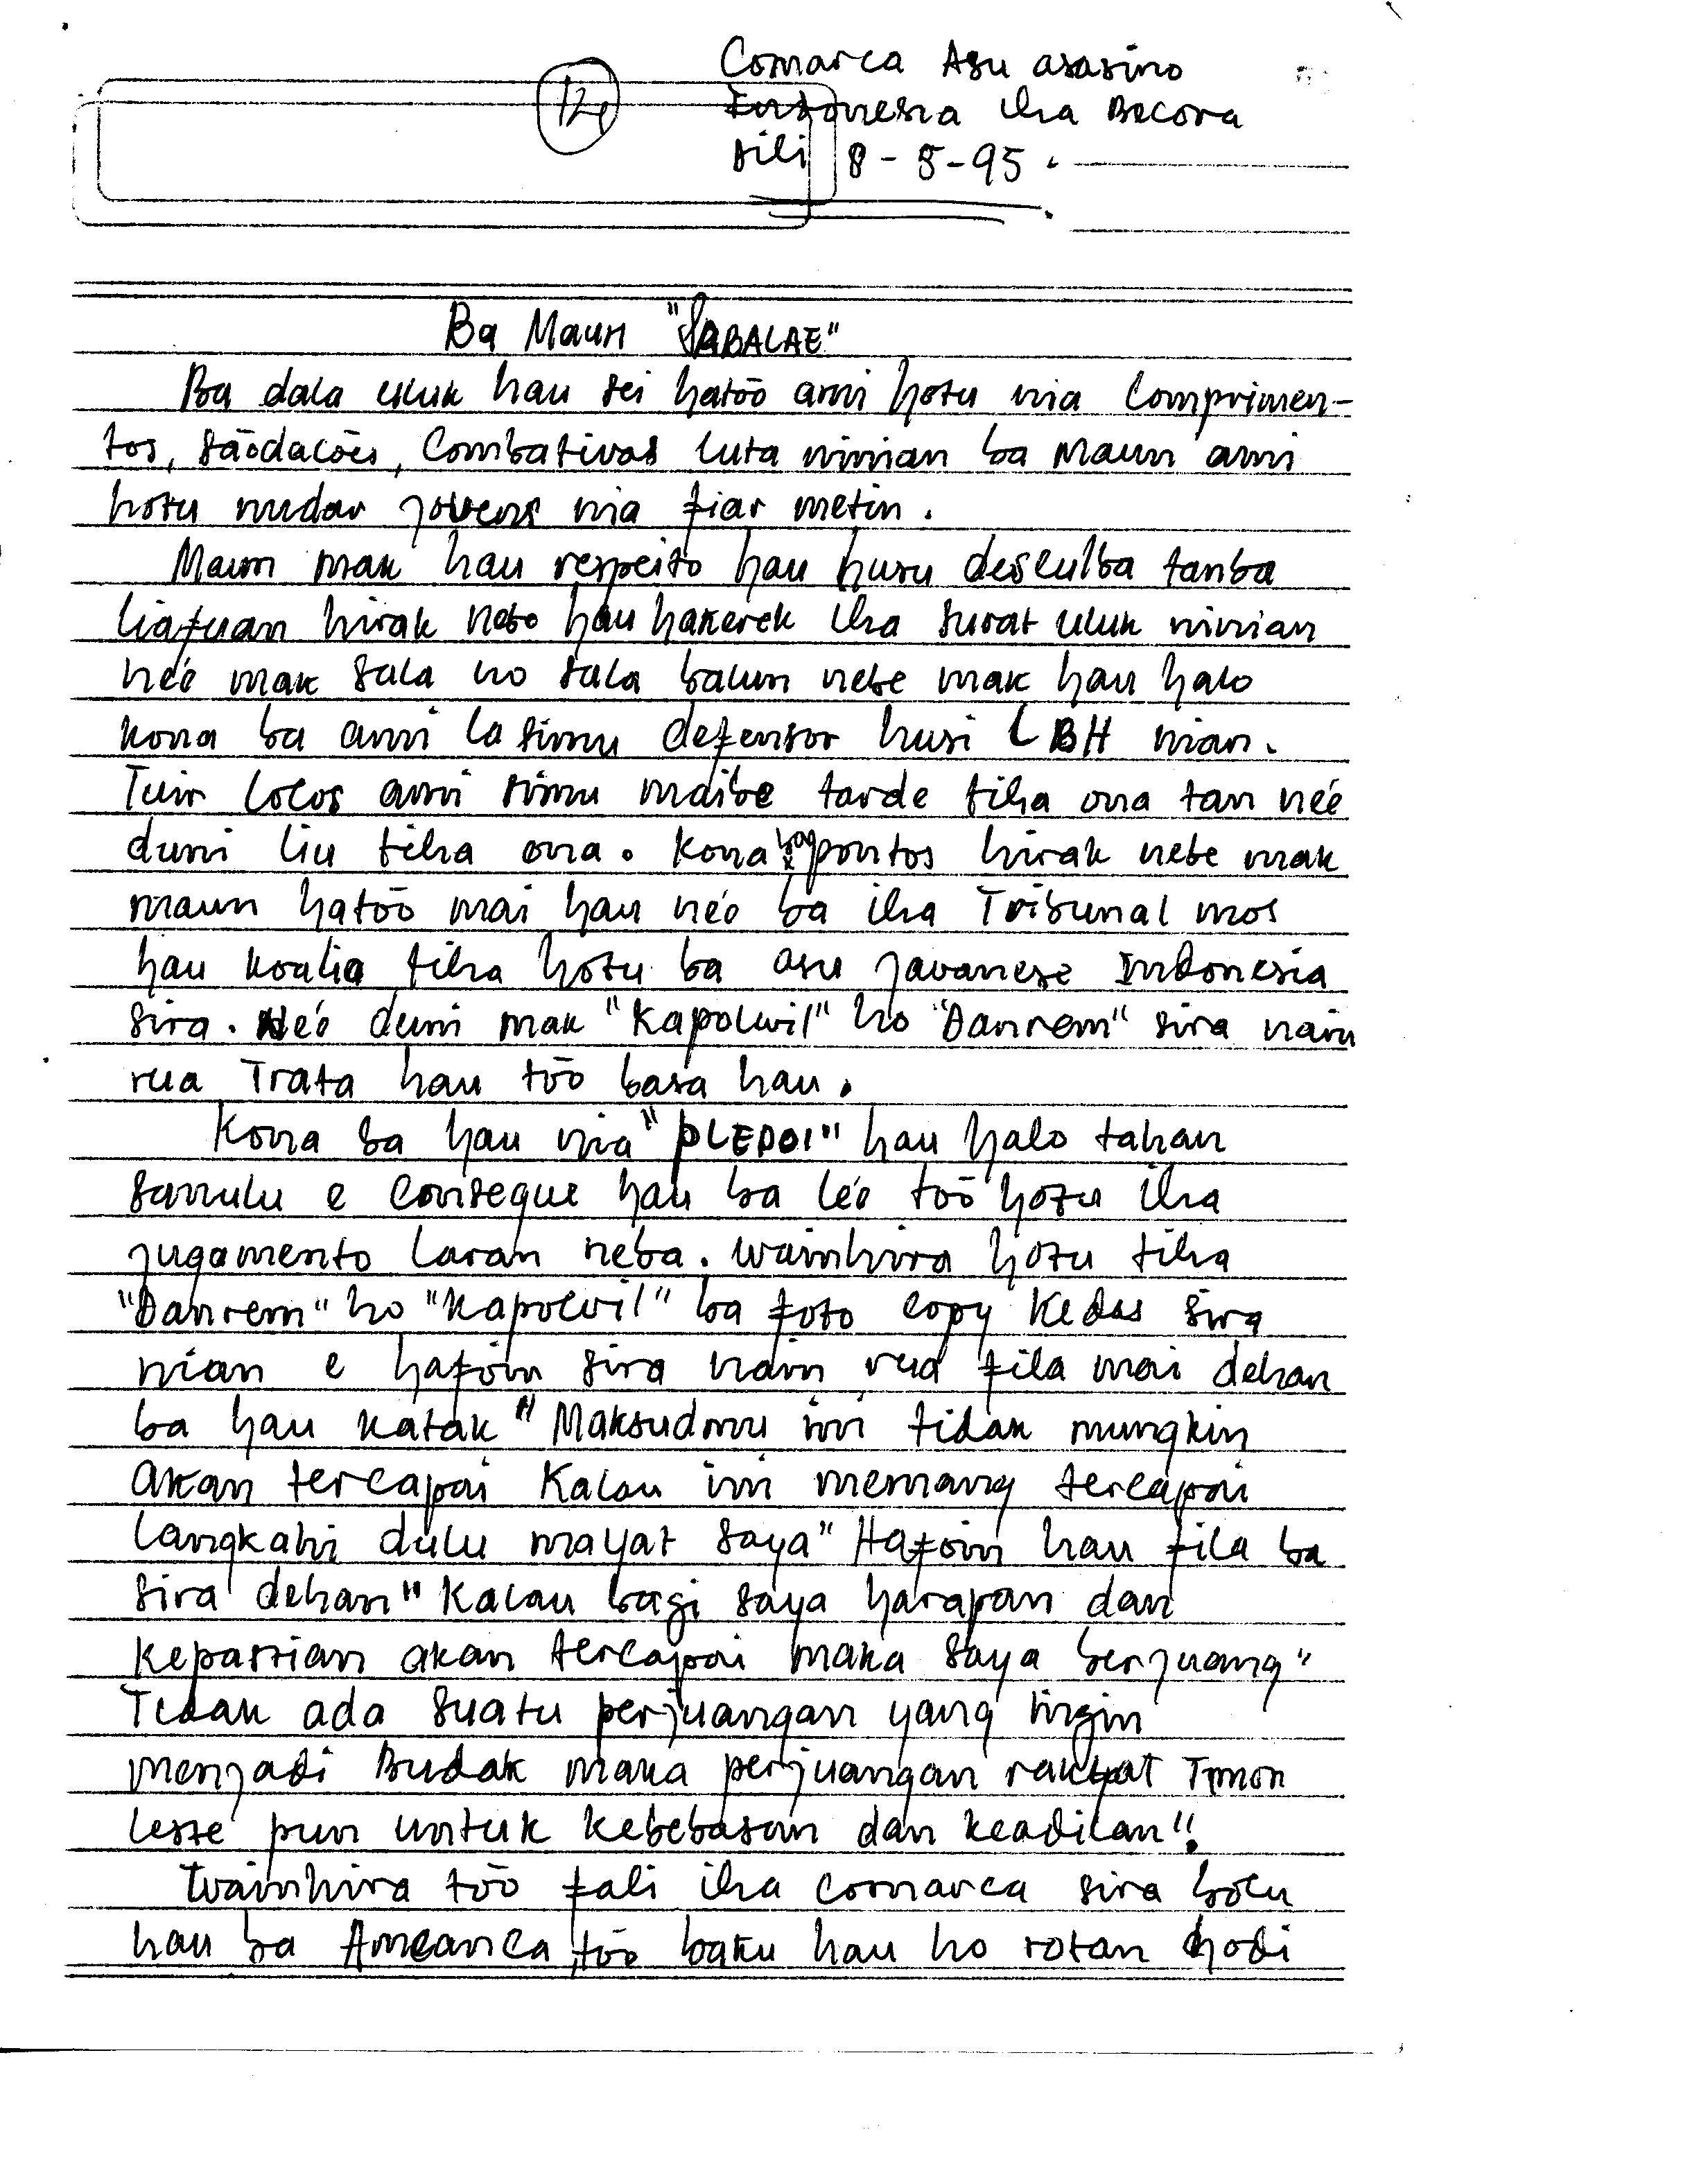 Comarca Asu asasino
Indonesia iha Becora
Dili 8-5-95.
Ba Maun "SABALAE"
Ba dala uluk hau sei hatōo ami hotu nia Comprimen-
tos, sāodacões, Combativas luta ninian ba Maun ami
hotu nudar jovens nia fiar metin.
Maun mak hau respeito hau husu desculba tanba
liafuan hirak nebe hau hakerek iha surat uluk ninian
neé mak sala no sala balun nebe mak hau halo
kona ba ami la simu defensor husi LBH nian.
Tuir lolos ami simu maibe tarde tiha ona tan neé
duni liu tiha ona. Kona ba pontos hirak nebe mak
maun hatōo mai hau neé ba iha Tribunal mos
hau koalia tiha hotu ba asu javanese Indonesia
sira. Neé duni mak "Kapolwil" ho "Danrem" sira nain
rua Trata hau tōo basa hau.
Kona ba hau nia "PLEDOI" hau halo tahan
sanulu e consegue hau ba leé tōo hotu iha
jugamento laran neba. Wainhira hotu tiha
"Danrem" ho "Kapolwil" ba foto copy Kedas sira
nian e hafoin sira nain rua fila mai dehan
ba hau katak "Maksudmu ini tidak mungkin
akan tercapai Kalau ini memang tercapai
langkahi dulu mayat saya" Hafoin hau fila ba
sira dehan "Kalau bagi saya harapan dan
kepastian akan tercapai maka saya berjuang"
Tidak ada suatu perjuangan yang ingin
menjadi Budak maka perjuangan rakyat Timor
leste pun untuk kebebasan dan keadilan".
Wainhira tōo fali iha comarca sira bolu
hau ba Ameanca tōo baku hau ho rotan hodi